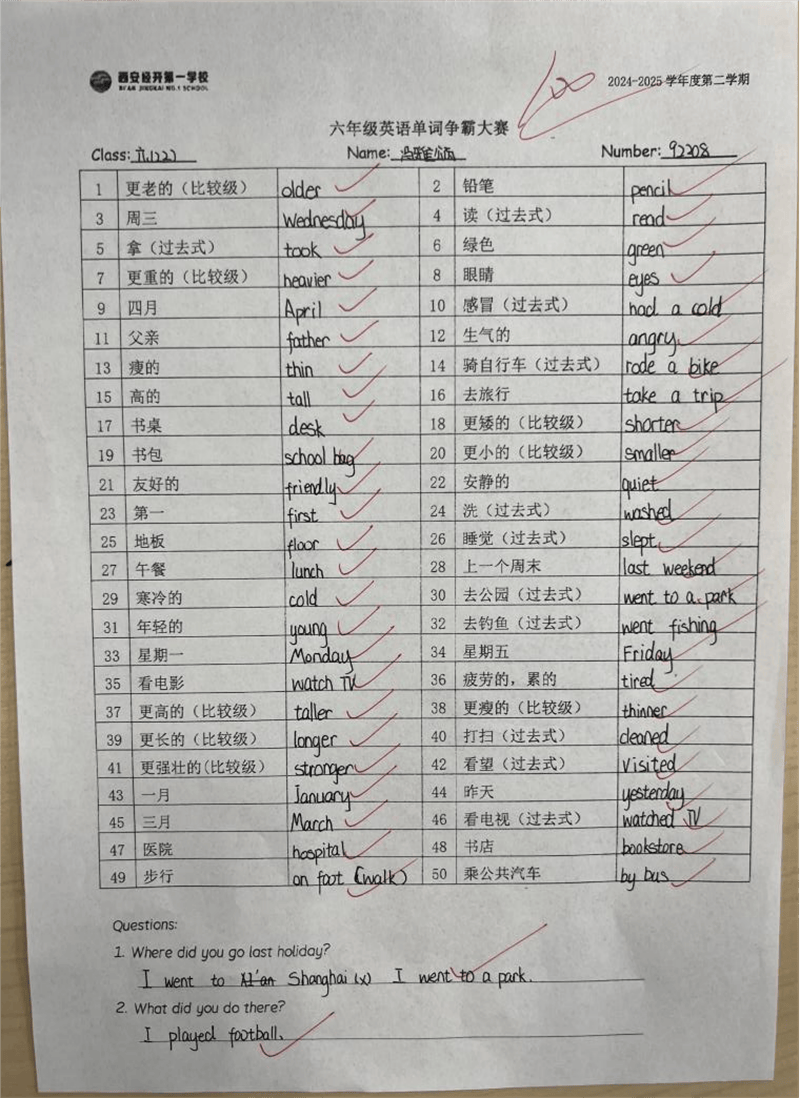 西安经开第一学校
XI'AN JINGKAI NO.1 SCHOOL
100
2024-2025 学年度第二学期
六年级英语单词争霸大赛
Class: Name: Number: 92308
1 更老的（比较级） older 2 铅笔 pencil
3 周三 Wednesday 4 读（过去式） read
5 拿（过去式） took 6 绿色 green
7 更重的（比较级） heavier 8 眼睛 eyes
9 四月 April 10 感冒（过去式） had a cold
11 父亲 father 12 生气的 angry
13 瘦的 thin 14 骑自行车（过去式） rode a bike
15 高的 tall 16 去旅行 take a trip
17 书桌 desk 18 更矮的（比较级） shorter
19 书包 school bag 20 更小的（比较级） smaller
21 友好的 friendly 22 安静的 quiet
23 第一 first 24 洗（过去式） washed
25 地板 floor 26 睡觉（过去式） slept
27 午餐 lunch 28 上一个周末 last weekend
29 寒冷的 cold 30 去公园（过去式） went to a park
31 年轻的 young 32 去钓鱼（过去式） went fishing
33 星期一 Monday 34 星期五 Friday
35 看电影 watch TV 36 疲劳的，累的 tired
37 更高的（比较级） taller 38 更瘦的（比较级） thinner
39 更长的（比较级） longer 40 打扫（过去式） cleaned
41 更强壮的(比较级） stronger 42 看望（过去式） visited
43 一月 January 44 昨天 yesterday
45 三月 March 46 看电视（过去式） watched TV
47 医院 hospital 48 书店 bookstore
49 步行 on foot (walk) 50 乘公共汽车 by bus
Questions:
1. Where did you go last holiday?
I went to Xi'an Shanghai (x) I went to a park.
2. What did you do there?
I played football.